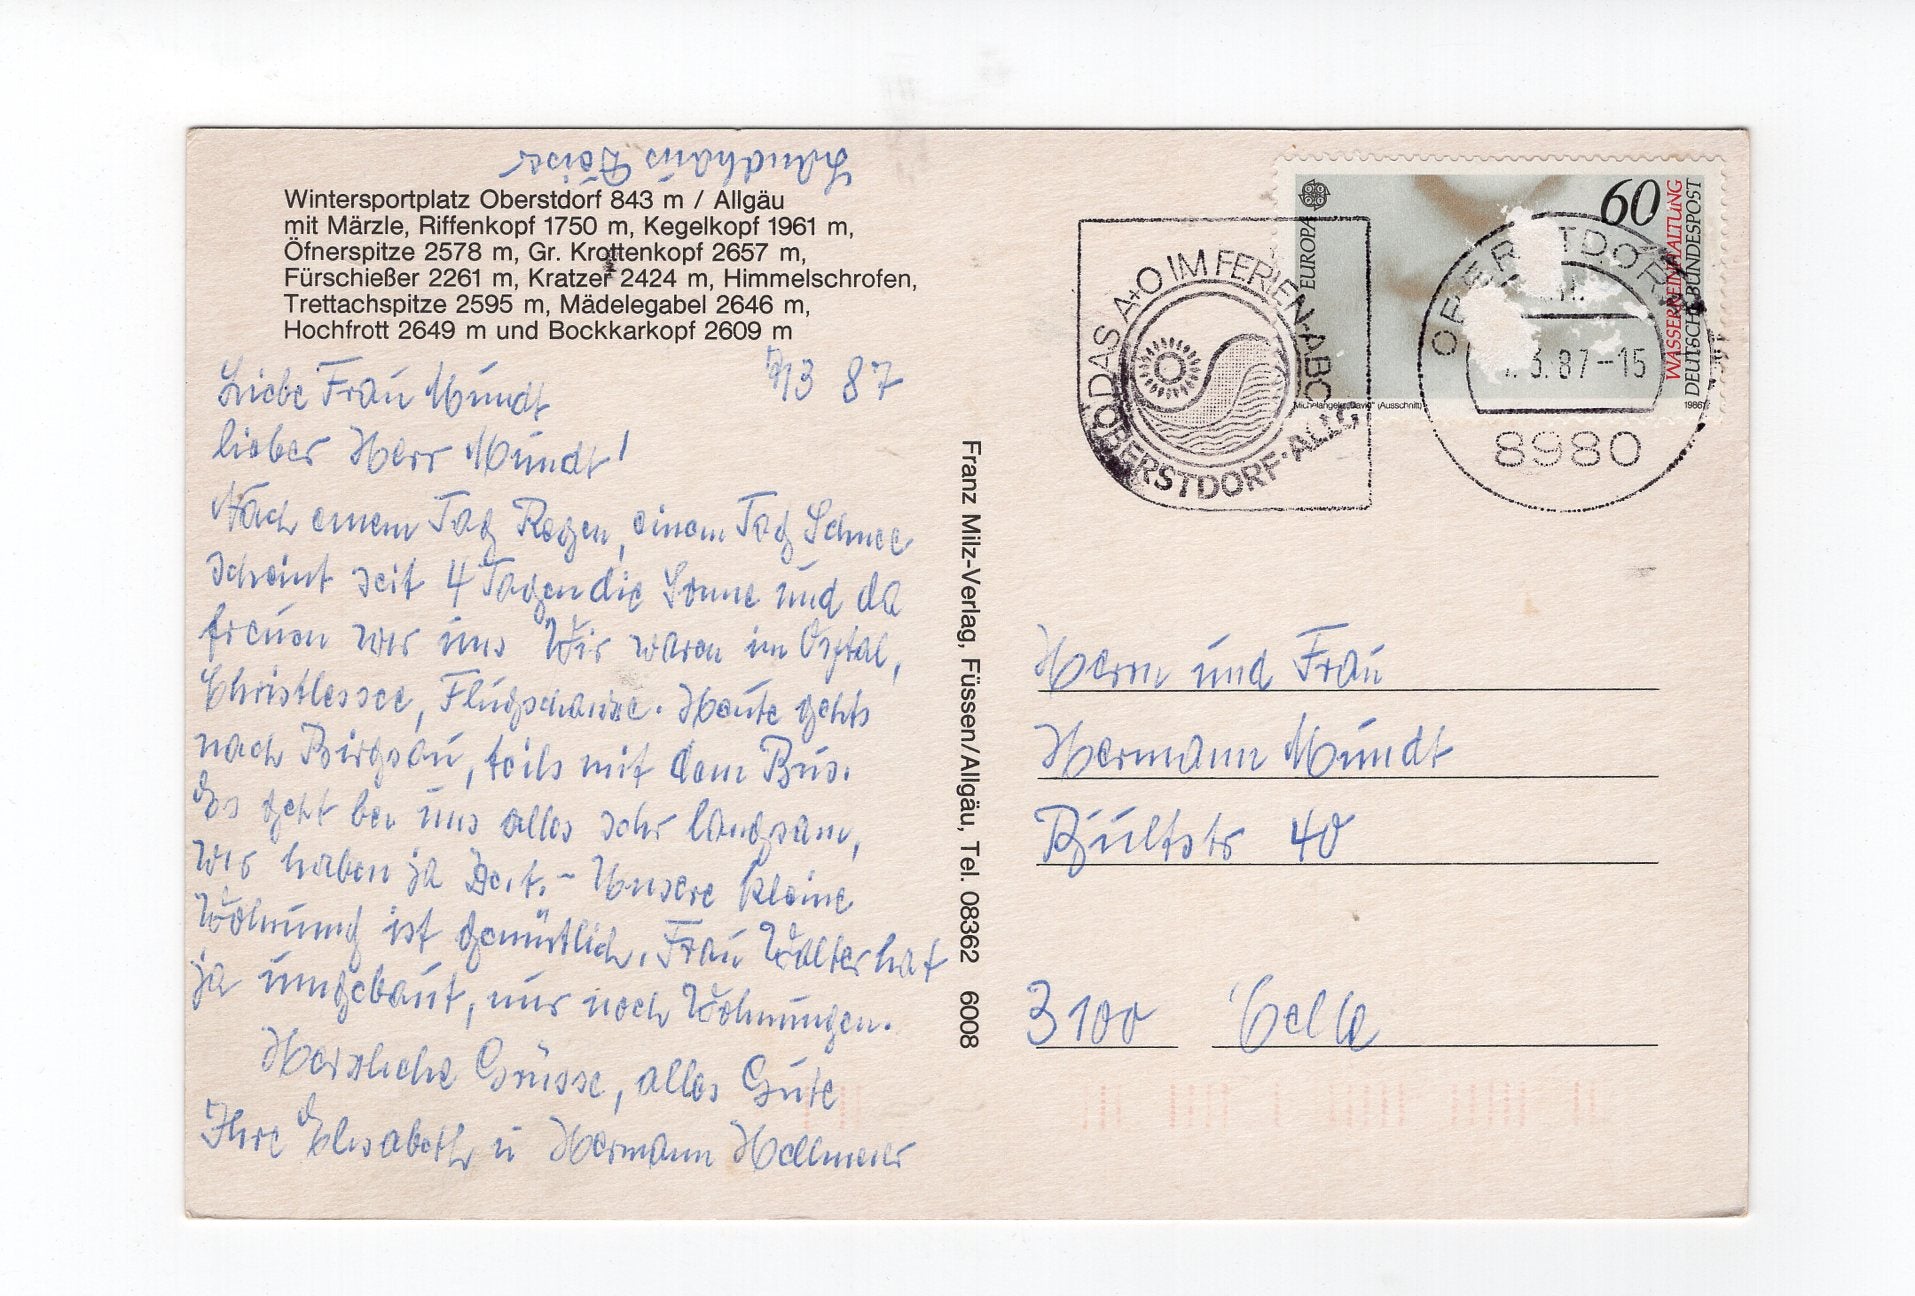 Landhaus
Wintersportplatz Oberstdorf 843 m / Allgäu
mit Märzle, Riffenkopf 1750 m, Kegelkopf 1961 m,
Öfnerspitze 2578 m, Gr. Krottenkopf 2657 m,
Fürschießer 2261 m, Kratzer 2424 m, Himmelschrofen,
Trettachspitze 2595 m, Mädelegabel 2646 m,
Hochfrott 2649 m und Bockkarkopf 2609 m
3 87
Liebe Frau Mundt
lieber Herr Mundt!
Nach einem Tag Regen, einem Tag Schnee
scheint seit 4 Tagen die Sonne und da
freuen wir uns Wir waren im Oytal,
Christlessee, Flugschanze. Heute gehts
nach Birgsau, teils mit dem Bus.
Es geht bei uns alles sehr langsam,
wir haben ja Zeit. – Unsere kleine
Wohnung ist gemütlich. Frau Walter hat
ja umgebaut, nur noch Wohnungen.
Herzliche Grüsse, alles Gute
Ihre Elisabeth u Hermann Hollmeier
Franz Milz-Verlag, Füssen/Allgäu, Tel. 08362 6008
DAS A+O IM FERIEN-ABC
OBERSTDORF·ALLG
EUROPA
60
WASSERREINHALTUNG
DEUTSCHE BUNDESPOST
Michelangelo „David" (Ausschnitt)
1986
OBERSTDORF
.3.87-15
8980
Herrn und Frau
Hermann Mundt
Bültstr 40
3100 Celle